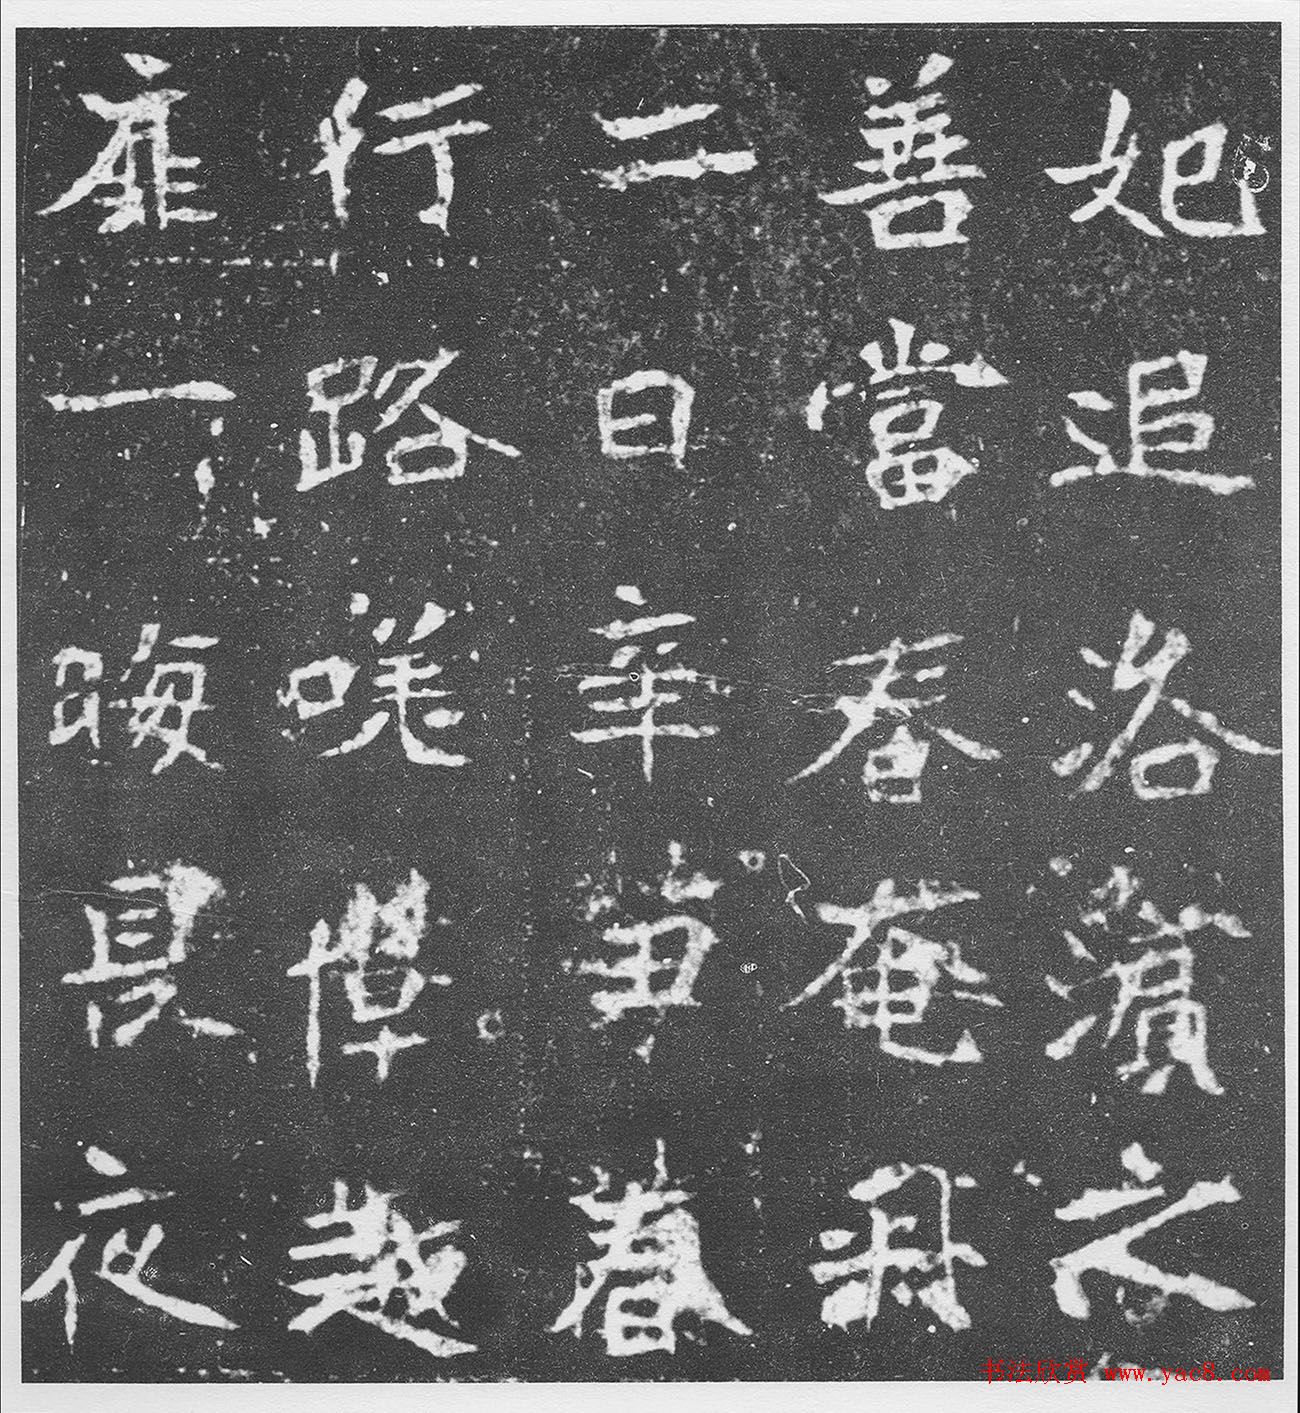 妃追洛濱之
善當春奄
二日辛春
行路嗟悼越
扉一晦長夜
书法欣赏 www.yac8.com